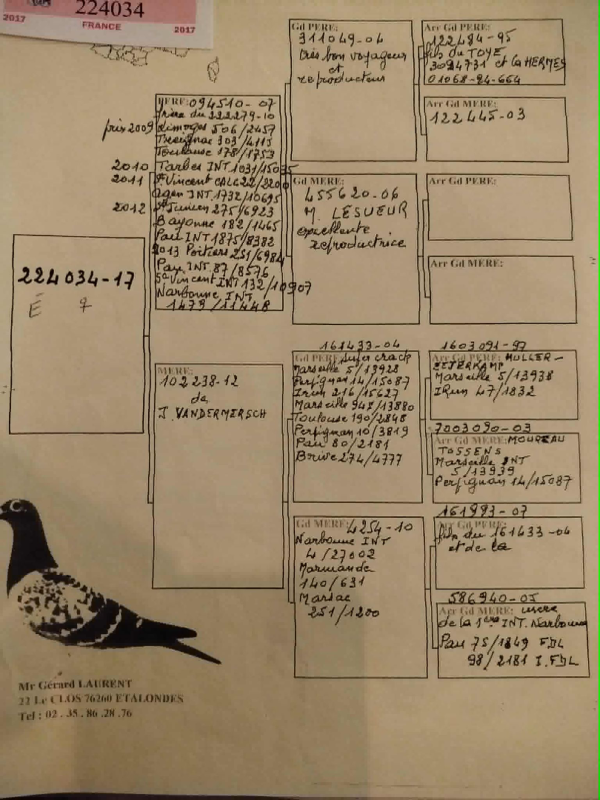 224034
2017 FRANCE 2017
224034-17
E ♀
PERE: 094510-07
frère du 222279-10
prix 2009 Limoges 506/2457
303/4113
Toulouse 178/1753
2010 Tarbes INT 1031/15035
2011 St Vincent CALC 22/2200
Agen INT 1732/10695
2012 St Junien 275/6923
Bayonne 182/1465
Pau INT 1875/8382
2013 Poitiers 251/6984
Pau INT 87/8576
St Vincent INT 132/10907
Narbonne INT
1479/11448
MERE:
102238-12
de
J. VANDERMERSCH
Gd PERE:
311049-04
très bon voyageur
et
reproducteur
Gd MERE:
455620-06
M. LESUEUR
excellente
reproductrice
161433-04
Gd PERE: super crack
Marseille 5/13928
Perpignan 14/15087
Irun 216/15627
Marseille 947/13880
Toulouse 190/2848
Perpignan 10/3819
Pau 80/2181
Brive 274/4777
Gd MERE: 4254-10
Narbonne INT
4/27002
Marmande
140/631
Marsac
251/1200
Arr Gd PERE:
122484-95
fils du TOYE
3094731 et la HERMES
01068-94-664
Arr Gd MERE:
122445-03
Arr Gd PERE:
Arr Gd MERE:
1603091-97
Arr Gd PERE: MULLER-
Marseille 5/13938
Irun 47/1832
7003090-03
Arr Gd MERE: MOUREAU
TOSSENS
Marseille INT
5/13939
Perpignan 14/15087
161993-07
Arr Gd PERE:
fils du 161433-04
et de la
586940-05
Arr Gd MERE:
de la 1ère INT. Narbonne
Pau 75/1849 FDL
98/2181 I.FDL
Mr Gérard LAURENT
22 Le CLOS 76260 ETALONDES
Tel : 02 . 35 . 86 .28 .76